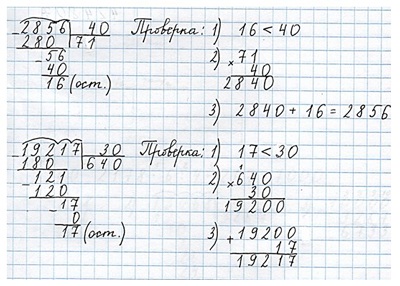 2856 | 40 Проверка: 1) 16 < 40
280 | 71
- 56 2) × 71
40 40
16 (ост.) 2840
3) 2840 + 16 = 2856
- 19217 | 30 Проверка: 1) 17 < 30
180 | 640
- 121 2) × 640
120 30
- 17 19200
0
17 (ост.) 3) + 19200
17
19217